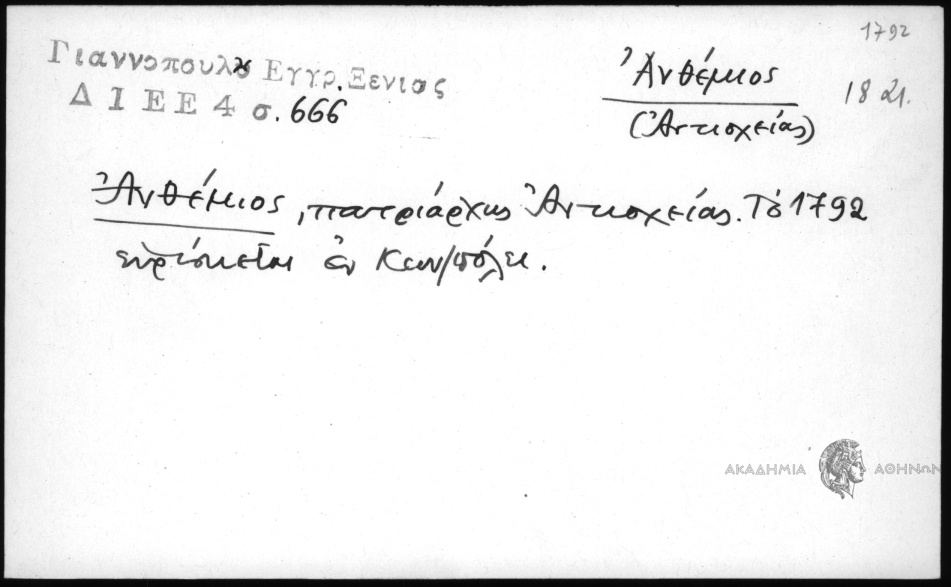 1792
Γιαννοπουλου Εγγρ. Ξενιας
Δ Ι Ε Ε 4 σ. 666
Ἀνθέμιος
18 21.
(Ἀντιοχείας)
Ἀνθέμιος, πατριάρχης Ἀντιοχείας. Τὸ 1792
εὑρίσκεται ἐν Κων/πόλει.
ΑΚΑΔΗΜΙΑ ΑΘΗΝΩΝ